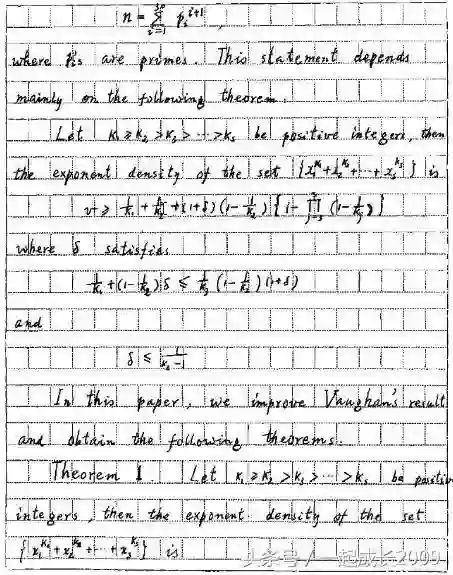 n = Σ_{i=1}^{30} p_i^{i+1},
where p_i's are primes. This statement depends
mainly on the following theorem.
Let k₁ ≥ k₂ > k₃ > ⋯ > k_s be positive integers, then
the exponent density of the set {x₁^{k₁} + x₂^{k₂} + ⋯ + x_s^{k_s}} is
ν ≥ 1/k₁ + 1/k₂ + (1+δ)(1 - 1/k₂){1 - ∏_{j=3}^{s} (1 - 1/k_j)}
where δ satisfies
1/k₁ + (1 - 1/k₂)δ ≤ 1/k₃ (1 - 1/k₂)(1+δ)
and
δ ≤
In this paper, we improve Vaughan's result
and obtain the following theorems.
Theorem 1. Let k₁ ≥ k₂ > k₃ > ⋯ > k_s be positiv
integers, then the exponent density of the set
{x₁^{k₁} + x₂^{k₂} + ⋯ + x_s^{k_s}} is
头条号 / 一起成长2009